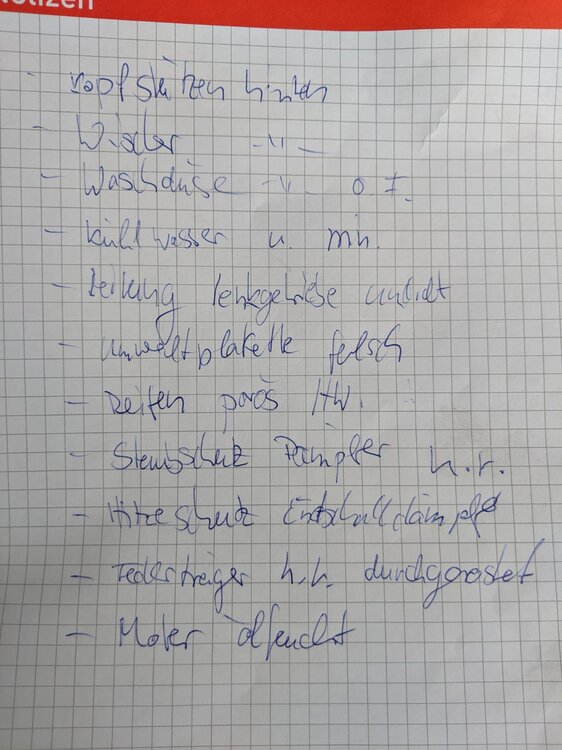 Notizen
- Kopfstützen hinten
- Wischer -"-
- Waschdüse -"- o. F.
- Kühlwasser u. min.
- Leitung lenkgetriebe undicht
- Umweltplakette falsch
- Reifen porös HW.
- Staubschutz Dämpfer h.r.
- Hitzeschutz Endschalldämpfe
- Federträger h.h. durchgerostet
- Motor ölfeucht